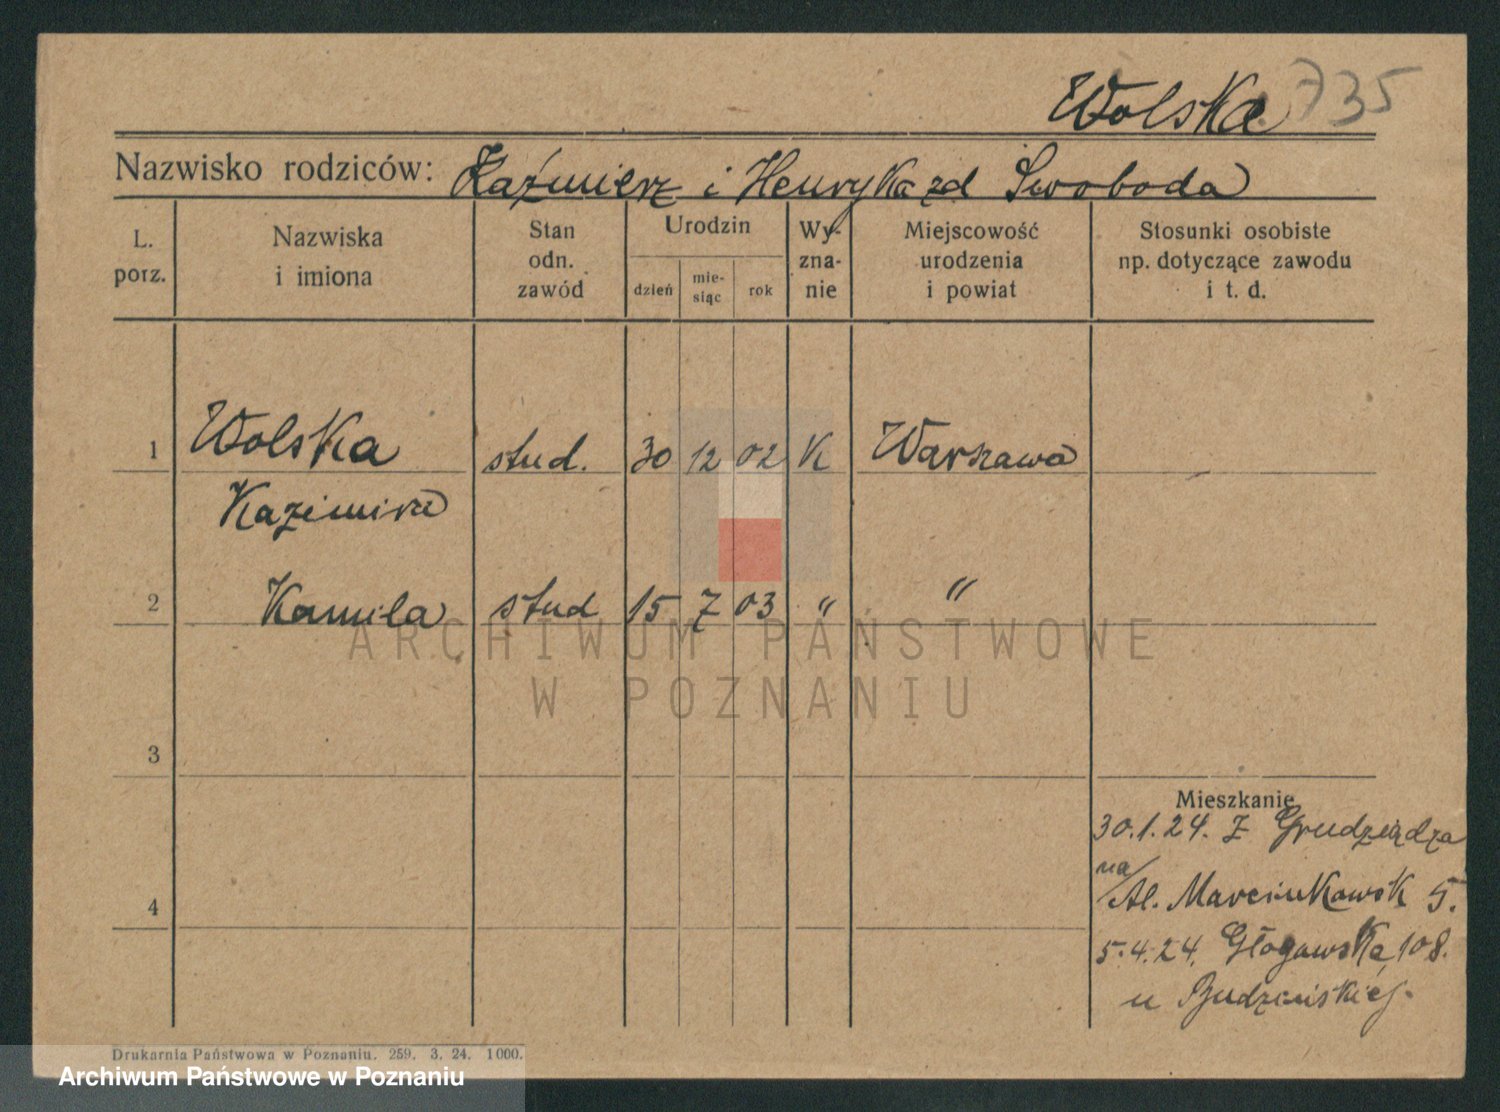 Wolska 735
Nazwisko rodziców: Kaźmierz i Henryka zd Swoboda
L. porz.
Nazwiska i imiona
Stan odn. zawód
Urodzin
dzień
mie-siąc
rok
Wy-zna-nie
Miejscowość urodzenia i powiat
Stosunki osobiste np. dotyczące zawodu i t. d.
1 Wolska stud. 30 12 02 K Warszawa
Kazimira
2 Kamila stud 15 7 03 " "
ARCHIWUM PAŃSTWOWE
W POZNANIU
3
Mieszkanie
30.1.24. z Grudziądza
na/Al. Marcinkowsk 5.
4
5.4.24. Głogowska 108.
u Budzeńskiej.
Drukarnia Państwowa w Poznaniu. 259. 3. 24. 1000.
Archiwum Państwowe w Poznaniu